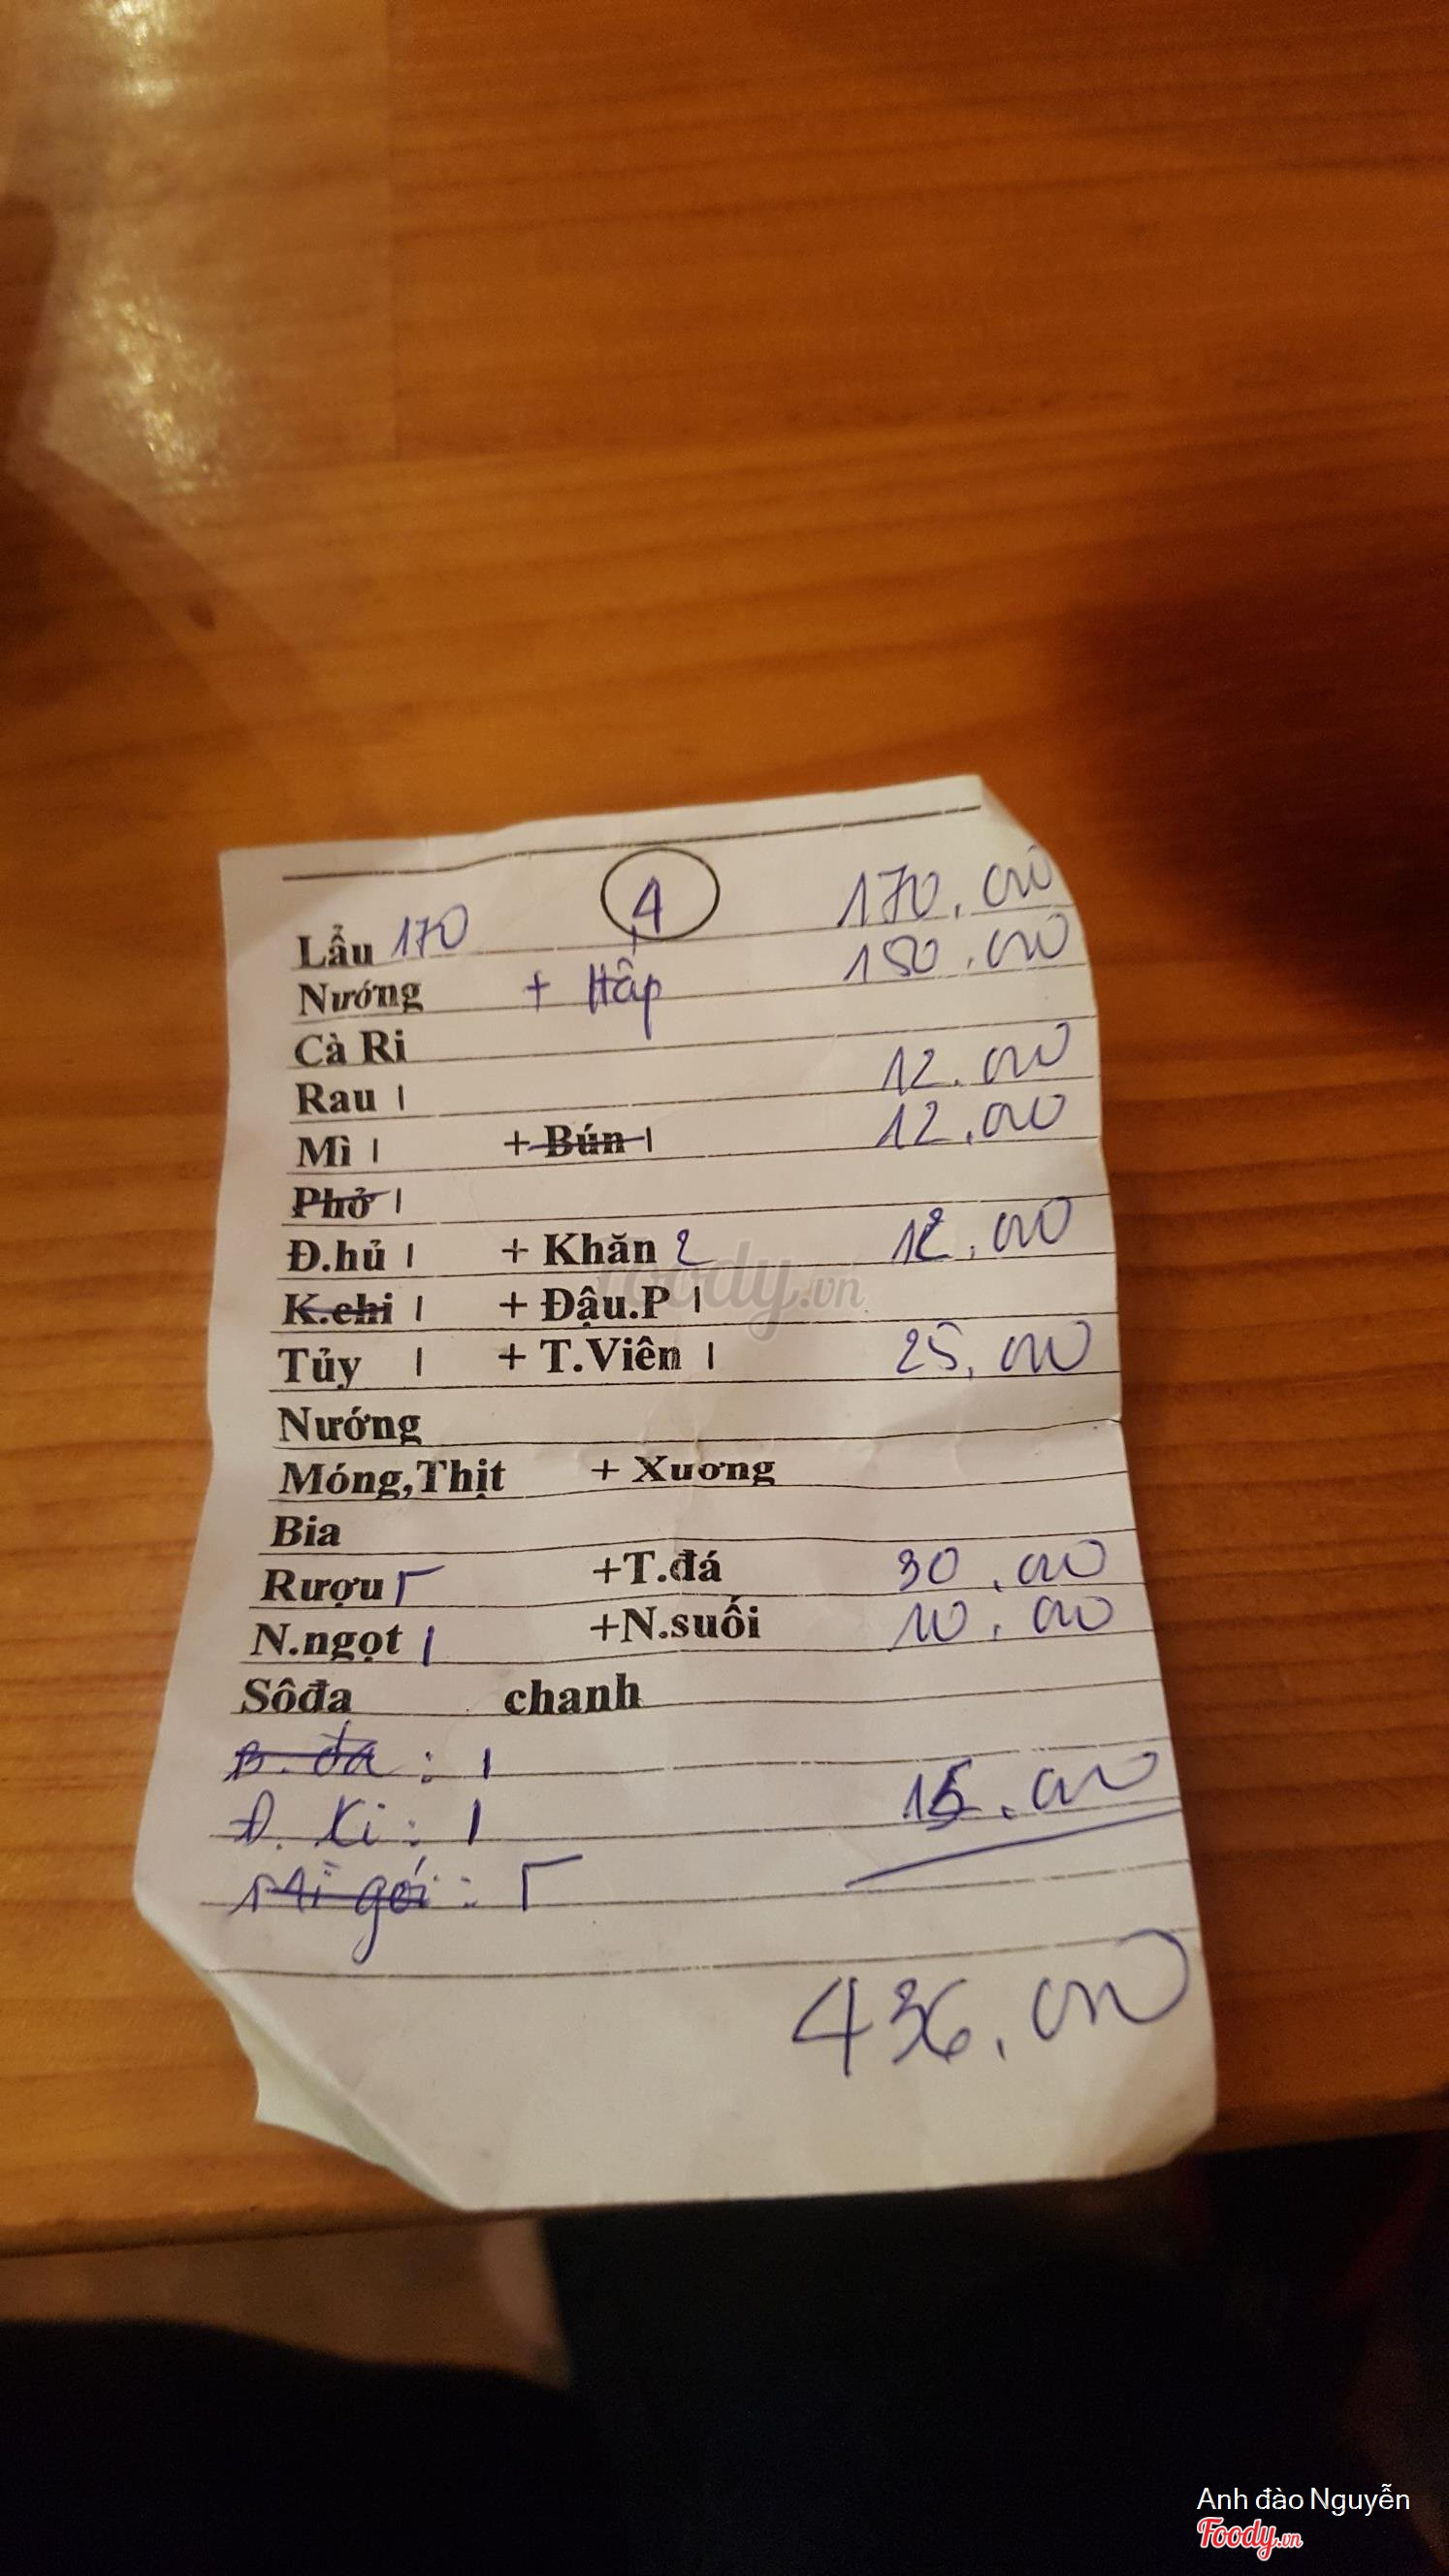 4
Lẩu 170 170.000
Nướng + Hấp 150.000
Cà Ri
Rau 1 12.000
Mì 1 + Bún 1 12.000
Phở 1
Đ.hủ 1 + Khăn 2 12.000
K.chi 1 + Đậu.P 1
Tủy 1 + T.Viên 1 25.000
Nướng
Móng,Thịt + Xương
Bia
Rượu +T.đá 30.000
N.ngọt 1 +N.suối 10.000
Sôđa chanh
B. đá : 1
Đ. Ki : 1 15.000
Mì gói :
436.000
foody.vn
Anh đào Nguyễn
Foody.vn